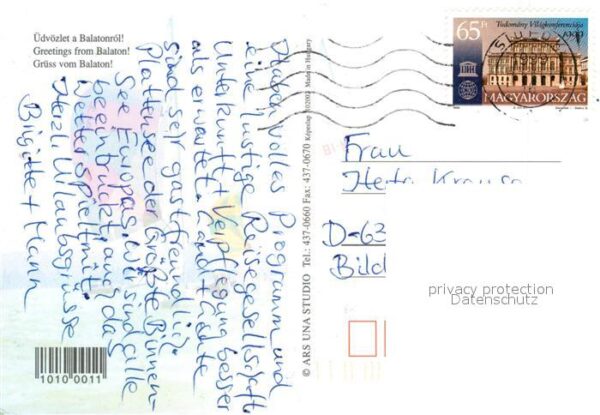 Üdvözlet a Balatonról!
Greetings from Balaton!
Grüss vom Balaton!
Deutsch volles Programm und
eine lustige Reisegesellschaft.
Unterkunft + Verpflegung besser
als erwartet. Land + Leute
sind sehr gastfreundlich.
Plattensee der größte Binnen-
See Europas. Wir sind alle
beeindruckt, auch das
Wetter spielt mit.
Herzl. Urlaubsgrüsse
Brigitte + Hann
© ARS UNA STUDIO Tel.: 437-0660 Fax: 437-0670 Made in Hungary
65Ft
Tudomány Világkonferenciája
1999
MAGYARORSZÁG
Frau
D-63
Bild
privacy protection
Datenschutz
1010 0011